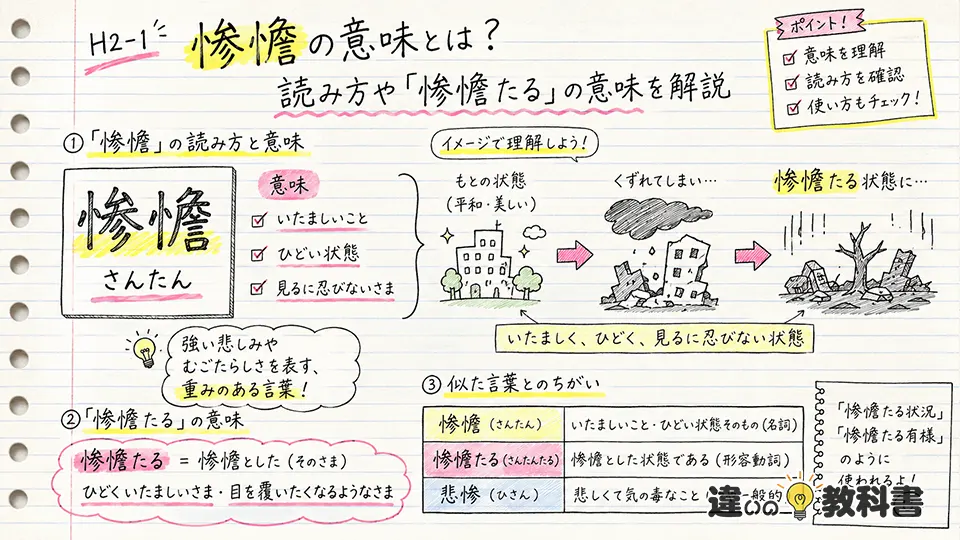 H2-1
惨憺の意味とは？
読み方や「惨憺たる」の意味を解説
ポイント！
意味を理解
読み方を確認
使い方もチェック！
①「惨憺」の読み方と意味
惨憺
さんたん
意味
いたましいこと
ひどい状態
見るに忍びないさま
強い悲しみや
むごたらしさを表す、
重みのある言葉！
イメージで理解しよう！
もとの状態
（平和・美しい）
くずれてしまい…
惨憺たる状態に…
いたましく、ひどく、見るに忍びない状態
②「惨憺たる」の意味
惨憺たる = 惨憺とした（そのさま）
ひどくいたましいさま・目を覆いたくなるようなさま
③ 似た言葉とのちがい
惨憺（さんたん） いたましいこと・ひどい状態そのもの（名詞）
惨憺たる（さんたんたる） 惨憺とした状態である（形容動詞）
悲惨（ひさん） 悲しくて気の毒なこと 一般的
「惨憺たる状況」
「惨憺たる有様」
のように
使われるよ！
違いの教科書